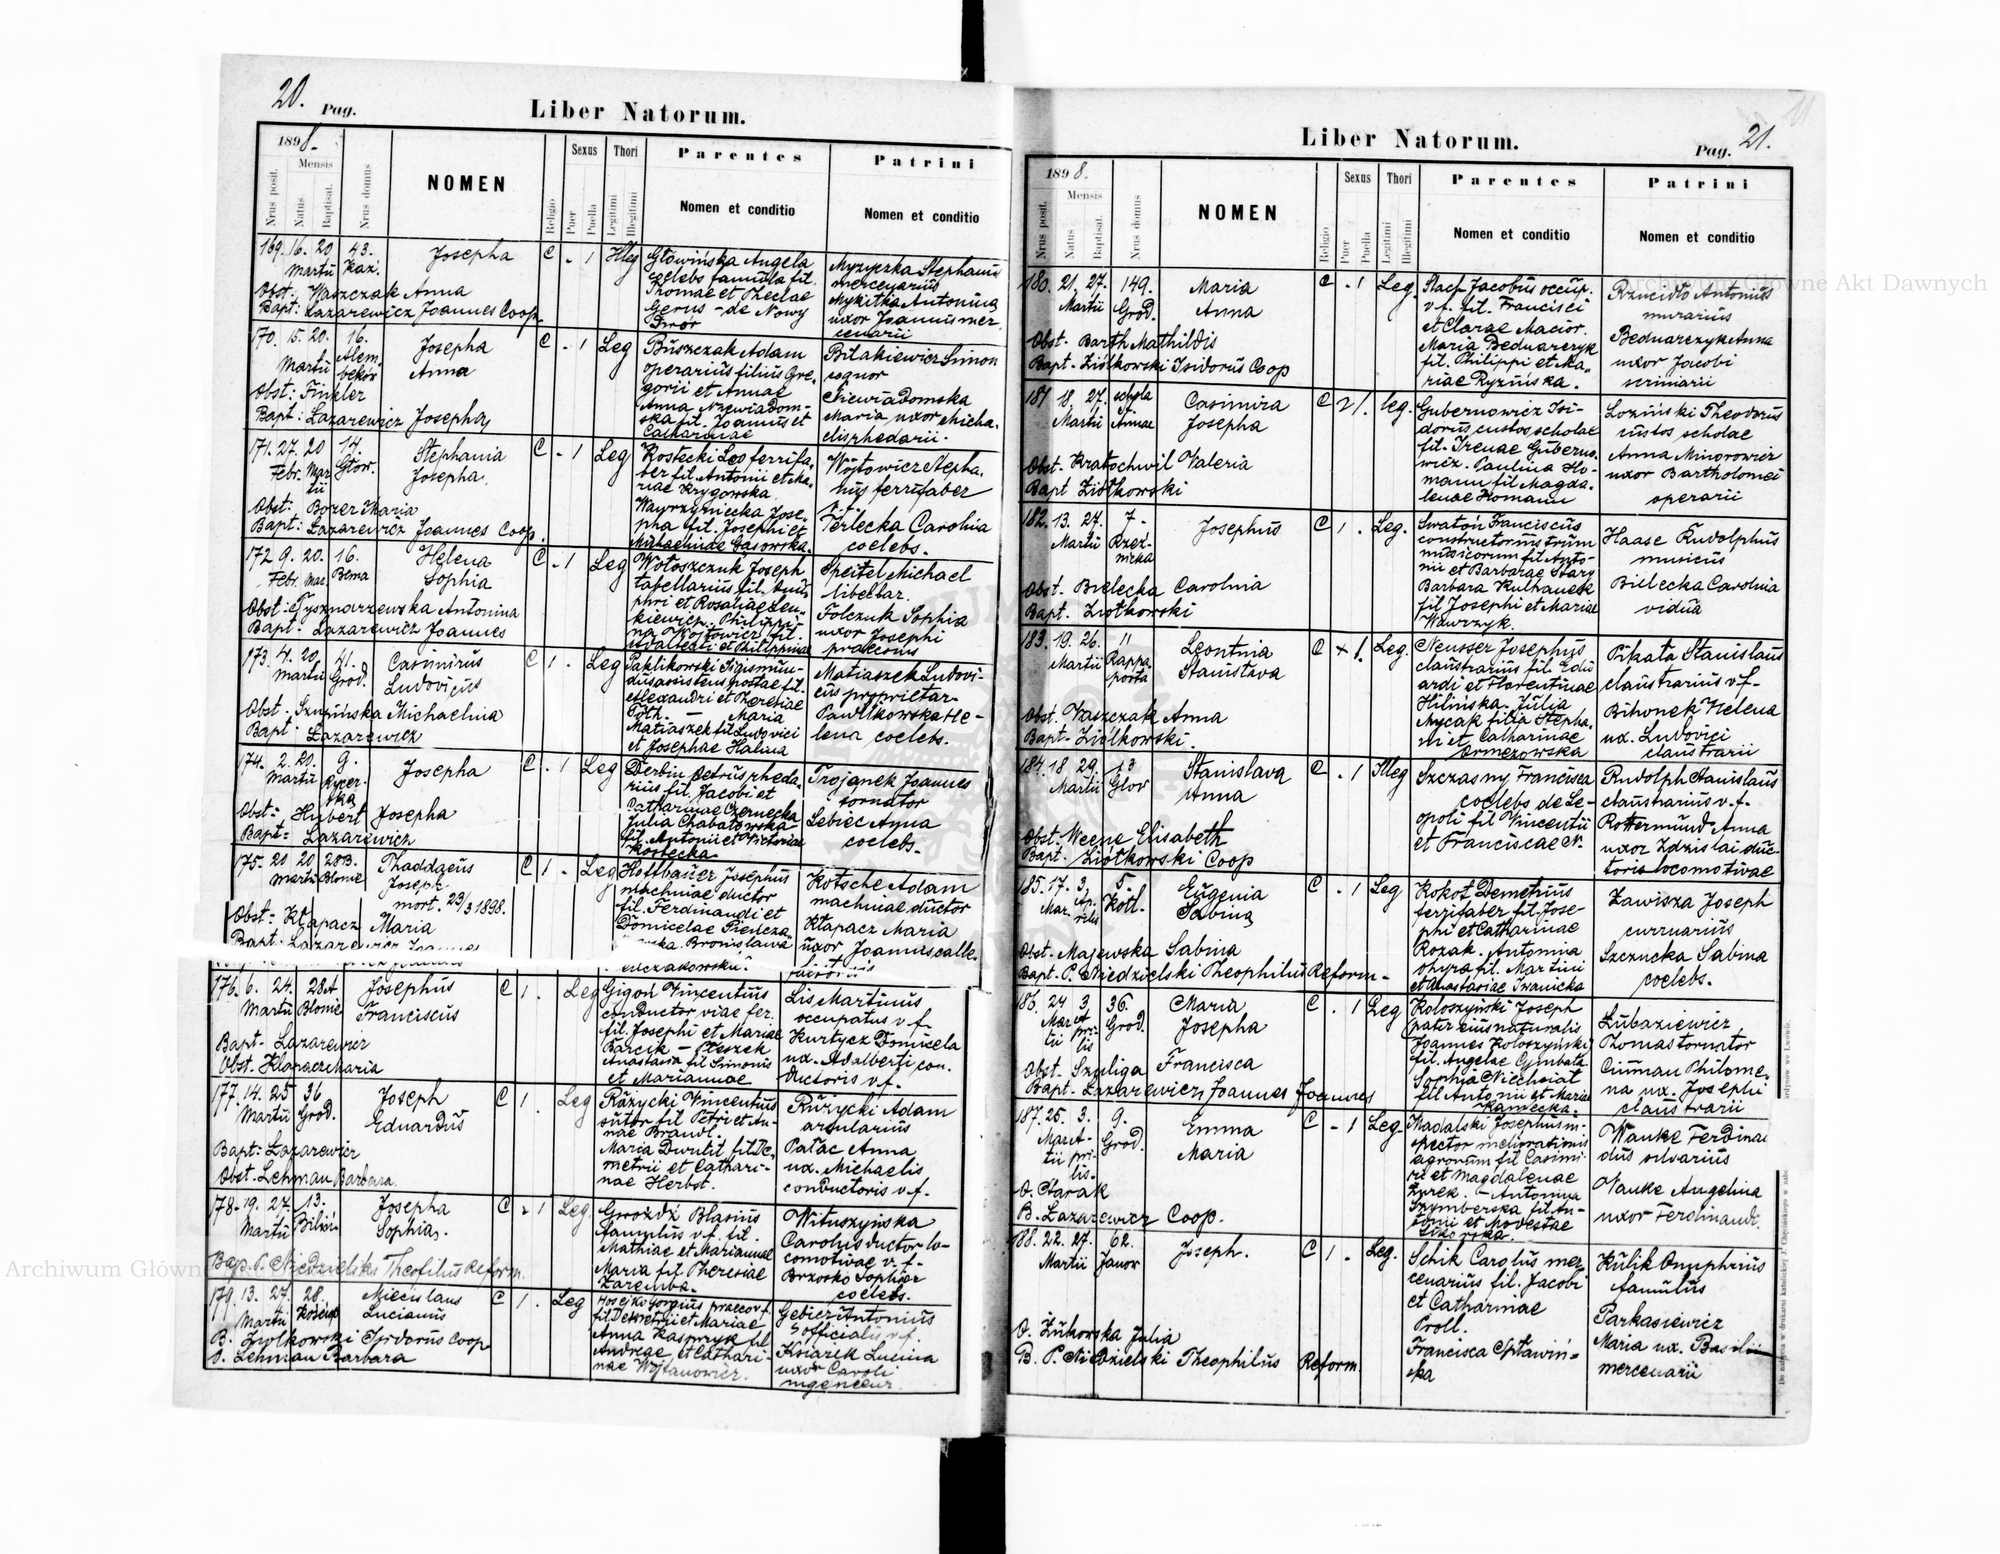 20.
Pag.
Liber Natorum.
1898.
Nrus posit.
Mensis
Natus
Baptisat.
Nrus domus
NOMEN
Religio
Sexus
Puer
Puella
Thori
Legitimi
Illegitimi
Parentes
Nomen et conditio
Patrini
Nomen et conditio
169. 16. 20 43. Josepha C - 1 Illeg
Martii Kaz.
Obst: Waszczak Anna
Bapt: Lazarewicz Joannes Coop.
Głowińska Angela
coelebs famula fil.
Thomae et Theclae
Gerus - de Nowy
Dwór
Myzyczka Stephanus
mercenarius
Mykitka Antonina
uxor Joannis mer
cenarii
170. 15. 20. 16. Josepha C - 1 Leg
Martii Anna
Obst: Finkler
Bapt: Lazarewicz Josepha
Buszczak Adam
operarius filius Gre-
gorii et Annae
Anna Niewiadom-
ska fil. Joannis et
Catharinae
Simon
Niewiadomska
Maria uxor Micha-
elis rhedarii.
171. 27. 20 14. Stephania C - 1 Leg
Febr. Mar Głow. Josepha.
tii
Obst: Bozer Maria
Bapt: Lazarewicz Joannes Coop.
Kostecki Leo ferrifa-
ber fil. Antonii et Ma-
riae Krygowska.
Wawrzyniecka Jose-
pha fil. Josephi et
Michaelinae Gąsowska.
Wójtowicz Stepha-
nus ferrifaber
v. f.
Terlecka Carolina
coelebs.
172 9. 20. 16. Helena C - 1 Leg
Febr. Mar. Bema Sophia
Obst: Tysznarzewska Antonina
Bapt: Lazarewicz Joannes
Wołoszczuk Joseph
tabellarius fil. Onu-
phri et Rosaliae Leu-
kiewicz. Philippi-
na Wojtowicz fil.
Adalberti et Philippinae
Speitel Michael
libellar.
Folczuk Sophia
uxor Josephi
praeconis
173. 4. 20. 41. Casimirus C 1 - Leg
Martii Grod. Ludovicus
Obst. Michaelina
Bapt. Lazarewicz
Pawlikowski Sigismun-
dus assistens postae fil.
Alexandri et Theresiae
Toth. — Maria
Matiaszek fil Ludovici
et Josephae Halina
Matiaszek Ludovi-
cus proprietar-
Pawlikowska He-
lena coelebs.
174. 2. 20. 9. Josepha C - 1 Leg
Martii Rycer-
ska
Obst: Hubert Josepha
Bapt: Lazarewicz
Derbin Petrus rheda-
rius fil. Jacobi et
Catharinae Czernecka
Julia Chabatowska
fil. Antonii et Victoriae
Kostecka
Trojanek Joannes
tornator
Lebiec Anna
coelebs.
175. 20 20 28B. Thaddaeus C 1 - Leg
Martii Błonie Joseph.
mort. 29/3 1898.
Obst: Kłapacz Maria
Bapt. Lazarewicz Joannes
Hoffbauer Josephus
machinae ductor
fil. Ferdinandi et
Domicelae
Bronislava
Kotsche Adam
machinae ductor
Kłapacz Maria
uxor Joannis
176. 6. 24. 28A Josephus C 1. Leg
Martii Błonie Franciscus
Bapt- Lazarewicz
Obst. Klapacz Maria
Gigoń Vincentius
conductor viae fer.
fil. Josephi et Mariae
Barcik — Pleszek
Anastasia fil Simonis
et Mariannae
Lis Martinus
occupatus v. f.
Kurtycz Domicela
ux. Adalberti con-
ductoris v.f.
177. 14. 25 36 Joseph C 1. Leg
Martii Grod. Eduardus
Bapt: Lazarewicz
Obst. Lehman Barbara
Różycki Vincentius
sutor fil Petri et An-
nae Brandl.
Maria Dwulit fil De-
metrii et Cathari-
nae Herbst.
Różycki Adam
arcularius
Patac Anna
ux. Michaelis
conductoris v.f.
178. 19. 27. 13. Josepha C - 1 Leg
Martii Sophia.
Bap. P. Niedzielski Theofilus Reform.
Gwoźdź Blasius
famulus v. f. fil.
Mathiae et Mariannae
Maria fil Theresiae
Zaremba.
Wituszyńska
Carolus ductor lo-
comotivae v. f.
Brzosko Sophia
coelebs.
179. 13. 27. 28. Miecislaus C 1. Leg
Martii Lucianus
B. Ziołkowski Isidorus Coop
O. Lehman Barbara
fil Demetrii et Mariae
Anna Kasprzyk fil
Andreae et Cathari-
nae Wojtanowicz.
Gebicz Antonius
officialis v. f.
Książek Lucina
uxor Caroli
ingenieur.
Liber Natorum.
Pag. 21.
1898.
Nrus posit.
Mensis
Natus
Baptisat.
Nrus domus
NOMEN
Religio
Sexus
Puer
Puella
Thori
Legitimi
Illegitimi
Parentes
Nomen et conditio
Patrini
Nomen et conditio
180. 21. 27. 149. Maria C - 1 Leg.
Martii Grod. Anna
Obst- Barth Mathildis
Bapt- Ziółkowski Isidorus Coop
Stach Jacobus occup.
v. f. fil. Francisci
et Clarae Macior.
Maria Bednarczyk
fil. Philippi et Ma-
riae Ryzińska.
Antonius
murarius
Bednarczyk Anna
uxor Jacobi
scriniarii
181 18. 27. schola Casimira C 1. leg.
Martii Annae Josepha
Obst. Kratochwil Valeria
Bapt Ziołkowski
Gubernowicz Isi-
dorus custos scholae
fil. Irenae Guberno-
wicz. Paulina Ho-
mann fil Magda-
lenae Homann
Loziński Theodorus
custos scholae
Anna Minorowicz
uxor Bartholomei
operarii
182. 13. 27. 7- Josephus C 1. Leg.
Martii Rzez-
nicka
Obst- Bielecka Carolina
Bapt. Ziołkowski
Swatoń Franciscus
constructor instrum
musicorum fil Anto-
nii et Barbarae Stary
Barbara Kulhanek
fil Josephi et Mariae
Wawrzyk.
Haase Rudolphus
musicus
Bielecka Carolina
vidua
183. 19. 26. 11 Leontina C × 1. Leg.
Martii Rappa- Stanislava
porta
Obst. Waszczak Anna
Bapt- Ziółkowski.
Neusser Josephus
claustrarius fil. Edu
ardi et Florentinae
Hilińska. Julia
Mycak filia Stepha-
ni et Catharinae
Ormezowska
Pikata Stanislaus
claustrarius v f-
Bihonek Helena
ux. Ludovici
claustrarii
184. 18 29. 13 Stanislava C - 1 Illeg
Martii Glov Anna
Obst. Weene Elisabeth
Bapt. Ziółkowski Coop
Szczasny Francisca
coelebs de Le-
opoli fil Vincentii
et Franciscae N.
Rudolph Stanislaus
claustrarius v. f.
Rottermund Anna
uxor Zdzislai duc-
toris locomotivae
185. 17. 3. 5. Eugenia C - 1 Leg
Mar. Ap- Kotl. Sabina
rilis
Obst- Majewska Sabina
Bapt. P. Niedzielski Theophilus Reform-
Kokot Demetrius
ferrifaber fil. Jose-
phi et Catharinae
Rozak. Antonina
fil. Martini
et Anastasiae Iwanicka
Zawisza Joseph
currarius
Szczucka Sabina
coelebs.
186. 24 3 36. Maria C . 1 Leg
Grod. Josepha
Obst- Szuliga Francisca
Bapt. Lazarewicz Joannes Joannes
Koloszyński Joseph
pater eius naturalis
Joannes Koloszyński
fil. Angelae Cymbata
Sophia Niechciał
fil Antonii et Mariae
Kamecka.
Lubaziewicz
Thomas tornator
Philome-
na ux. Josephi
claustrarii
187. 25. 3. 9. Emma C - 1 Leg.
Mar- A- Grod. Maria
tii pri-
lis-
O. Charak
B. Lazarewicz Coop.
Madalski Josephus in-
spector meliorationis
agrorum fil Casimi
ri et Magdalenae
Żyrek. - Antonina
Szymberska fil. An-
tonii et Modestae
Sikorska.
Wauke Ferdinan
dus silvarius
Wauke Angelina
uxor Ferdinandi.
188. 22. 27. 62. Joseph. C 1 - Leg.
Martii Janow
O. Żukowska Julia
B. P. Niedzielski Theophilus Reform
Schik Carolus mer-
cenarius fil. Jacobi
et Catharinae
Proll.
Francisca
ska
Kulik Onuphrius
famulus
Parkasiewicz
Maria ux. Basilii
mercenarii
Archiwum Główne Akt Dawnych
Archiwum Główne